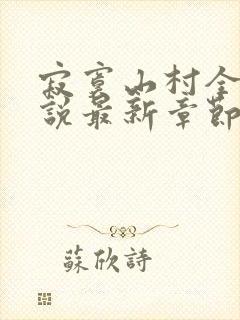 寂寞山村全
說最新章節
蘇欣詩